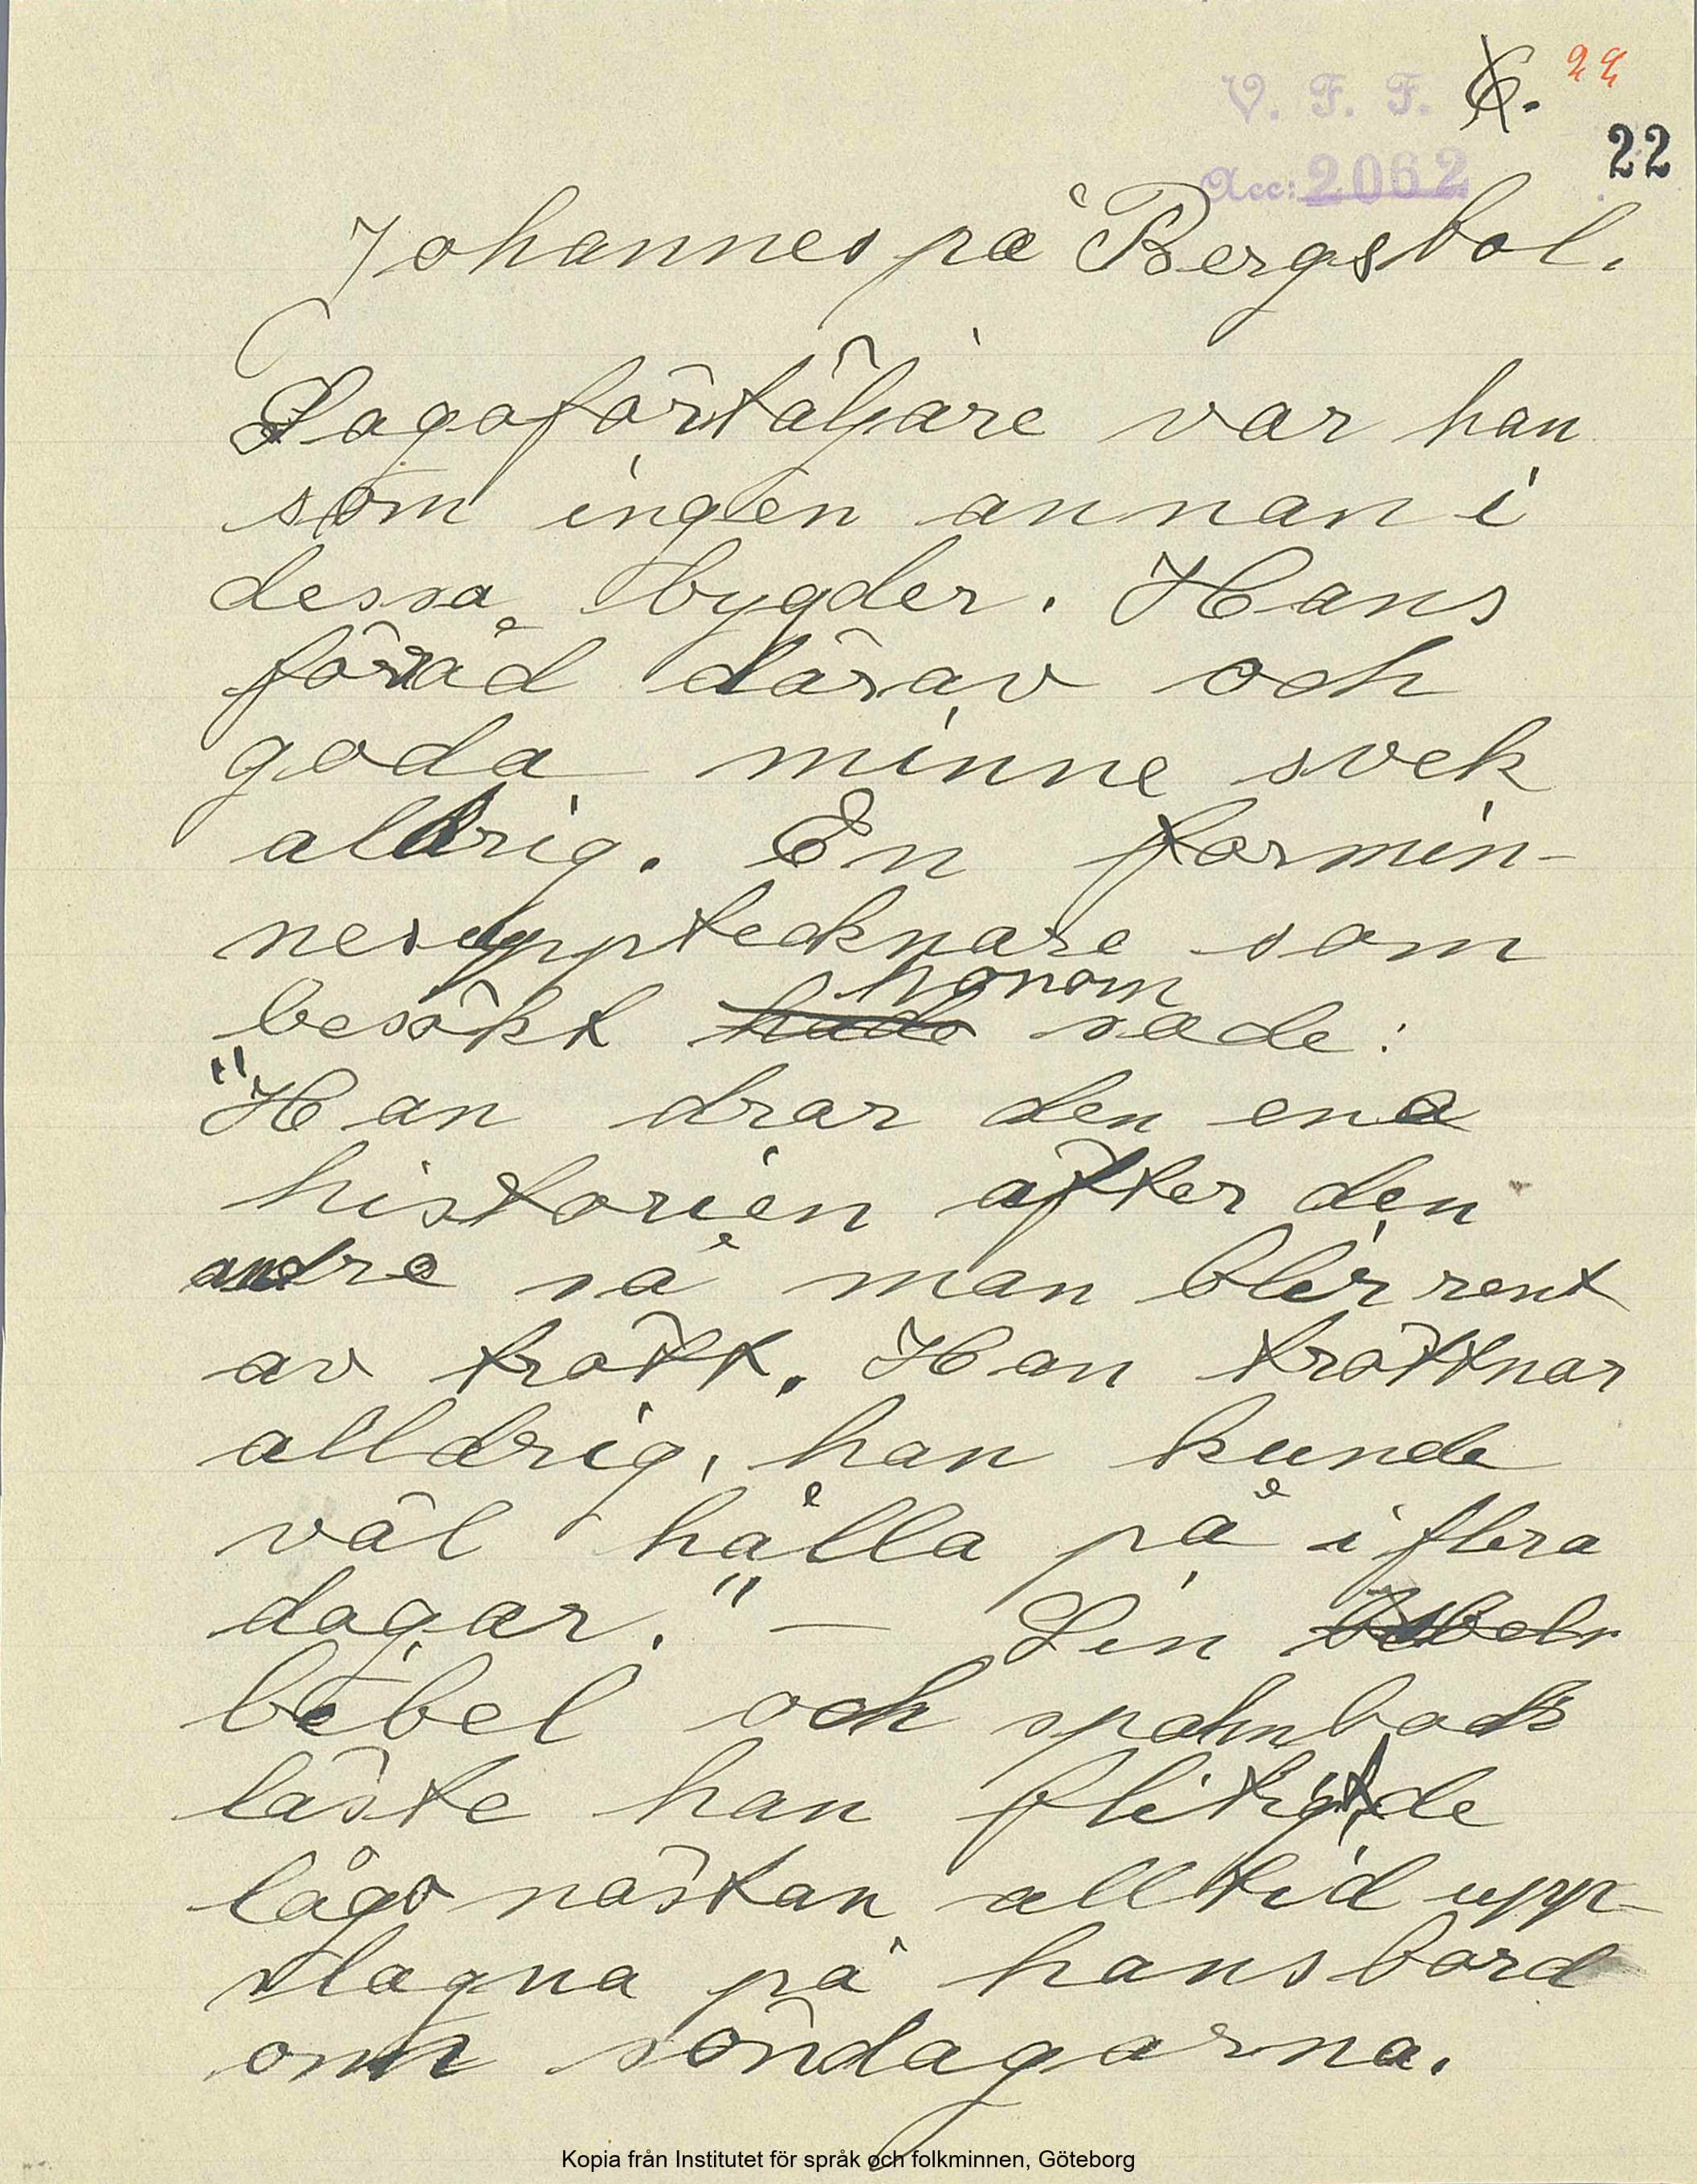 V. F. F. 6. 22
22
Acc: 2062
Johannes på Bergsbol.
Sagoförtäljare var han
som ingen annan i
dessa bygder. Hans
föråd därav och
goda minne svek
aldrig. En formin-
nesupptecknare som
honom
besökt hade sade:
"Han drar den ena
historien äfter den
andre så man blir rent
av trött. Han tröttnar
alldrig, han kunde
väl hålla på i flera
dagar." — Sin
bibel och spalmbock
läste han flitigt, de
lågo nästan alltid upp-
slagna på hans bord
om söndagarna.
Kopia från Institutet för språk och folkminnen, Göteborg